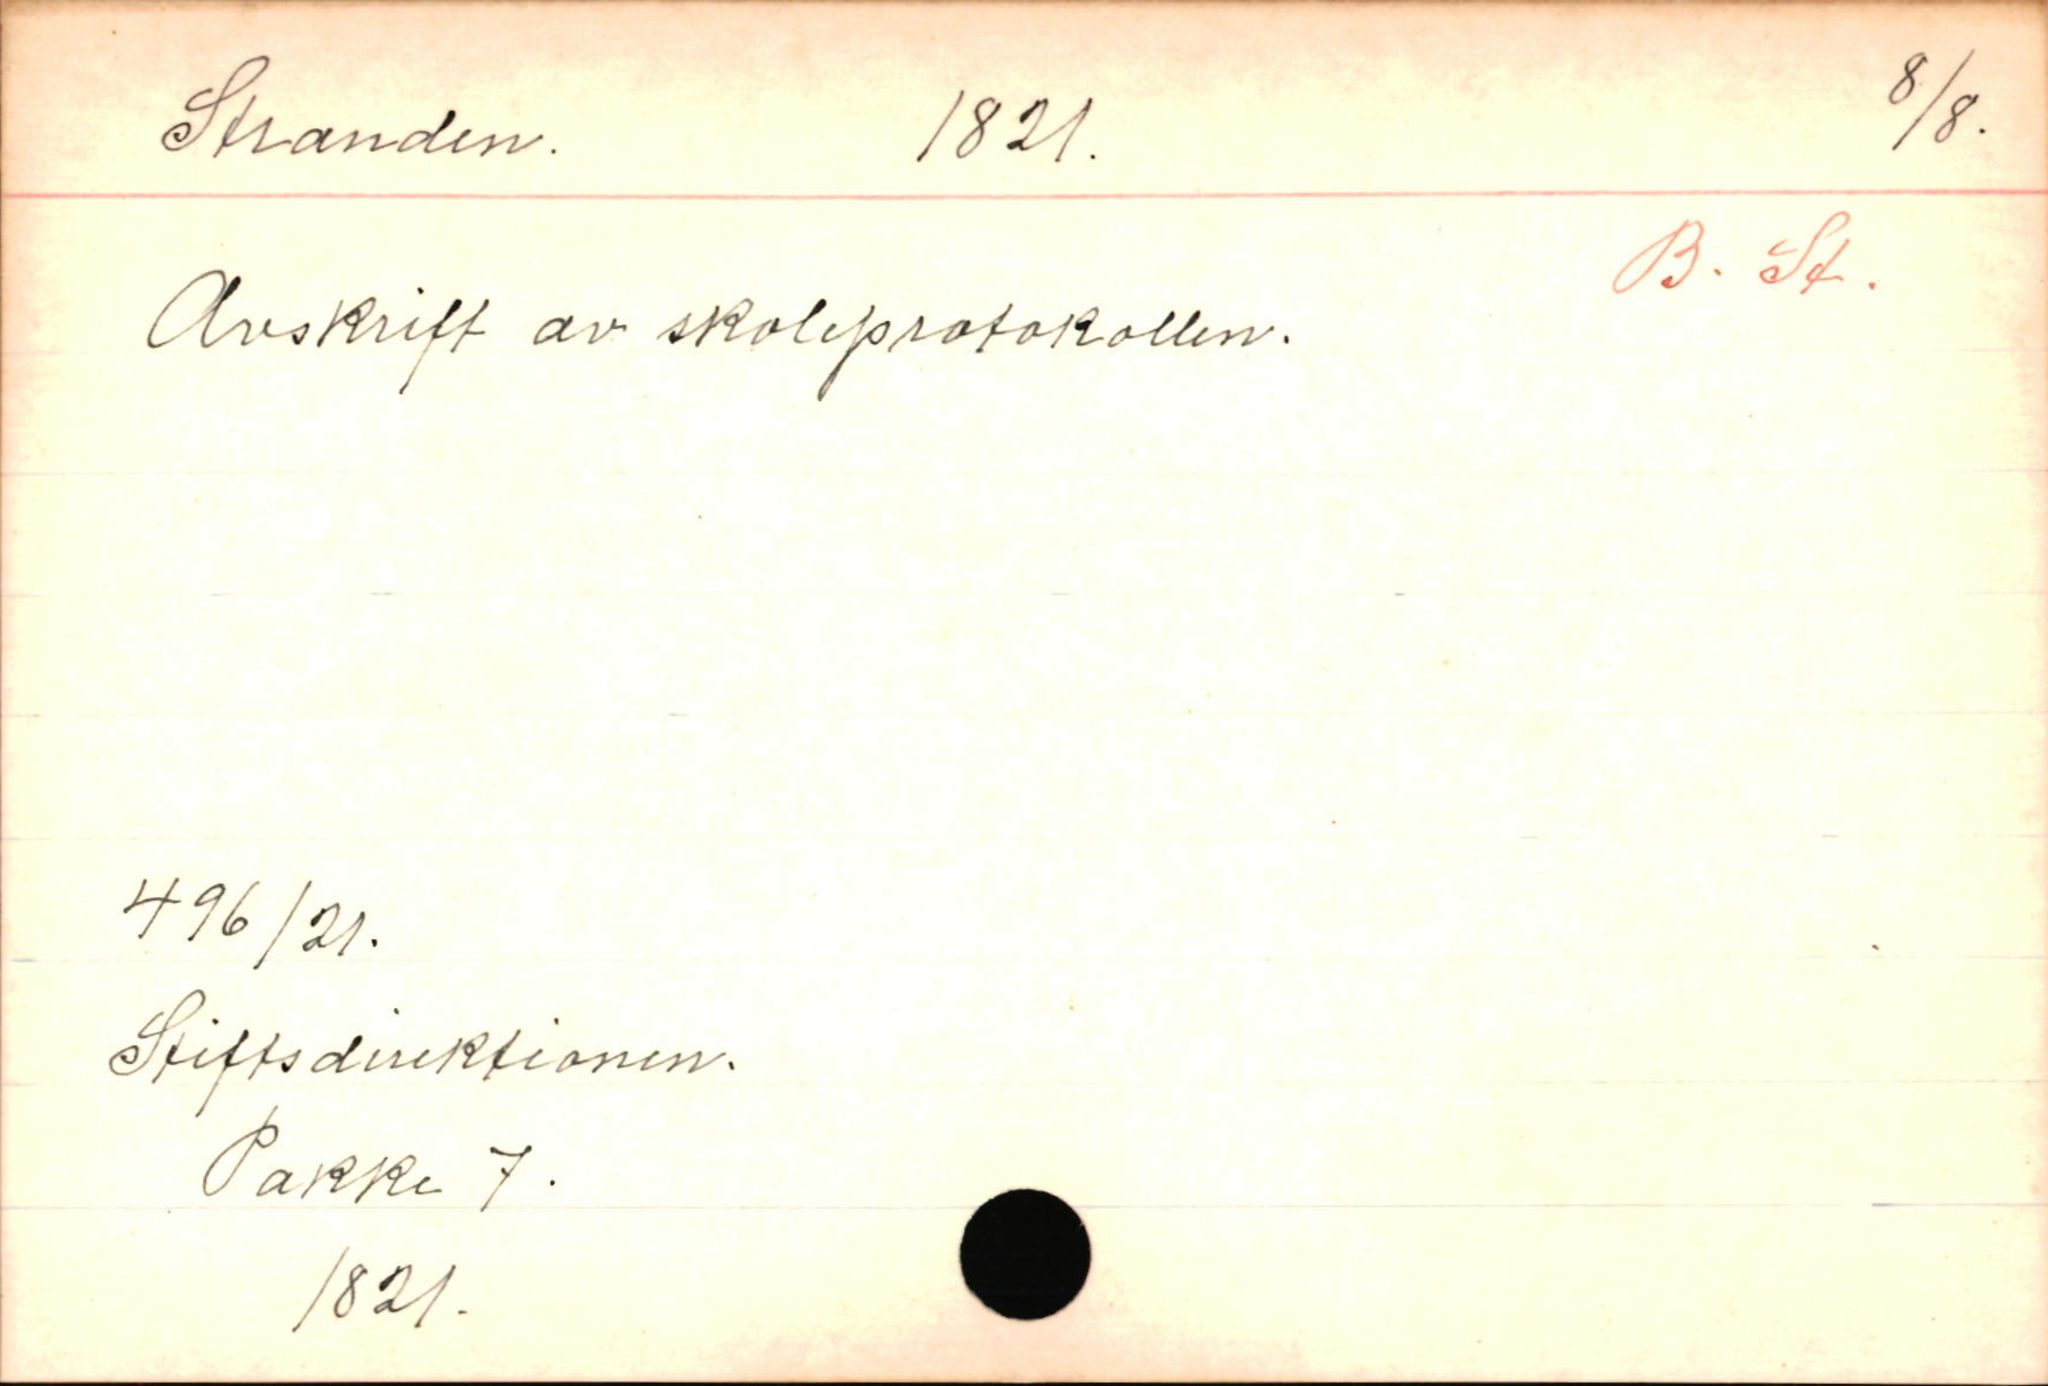 Stranden. 1821. 8/8.
B. St.
Avskrift av skoleprotokollen.
496/21.
Stiftsdirektionen.
Pakke 7.
1821.